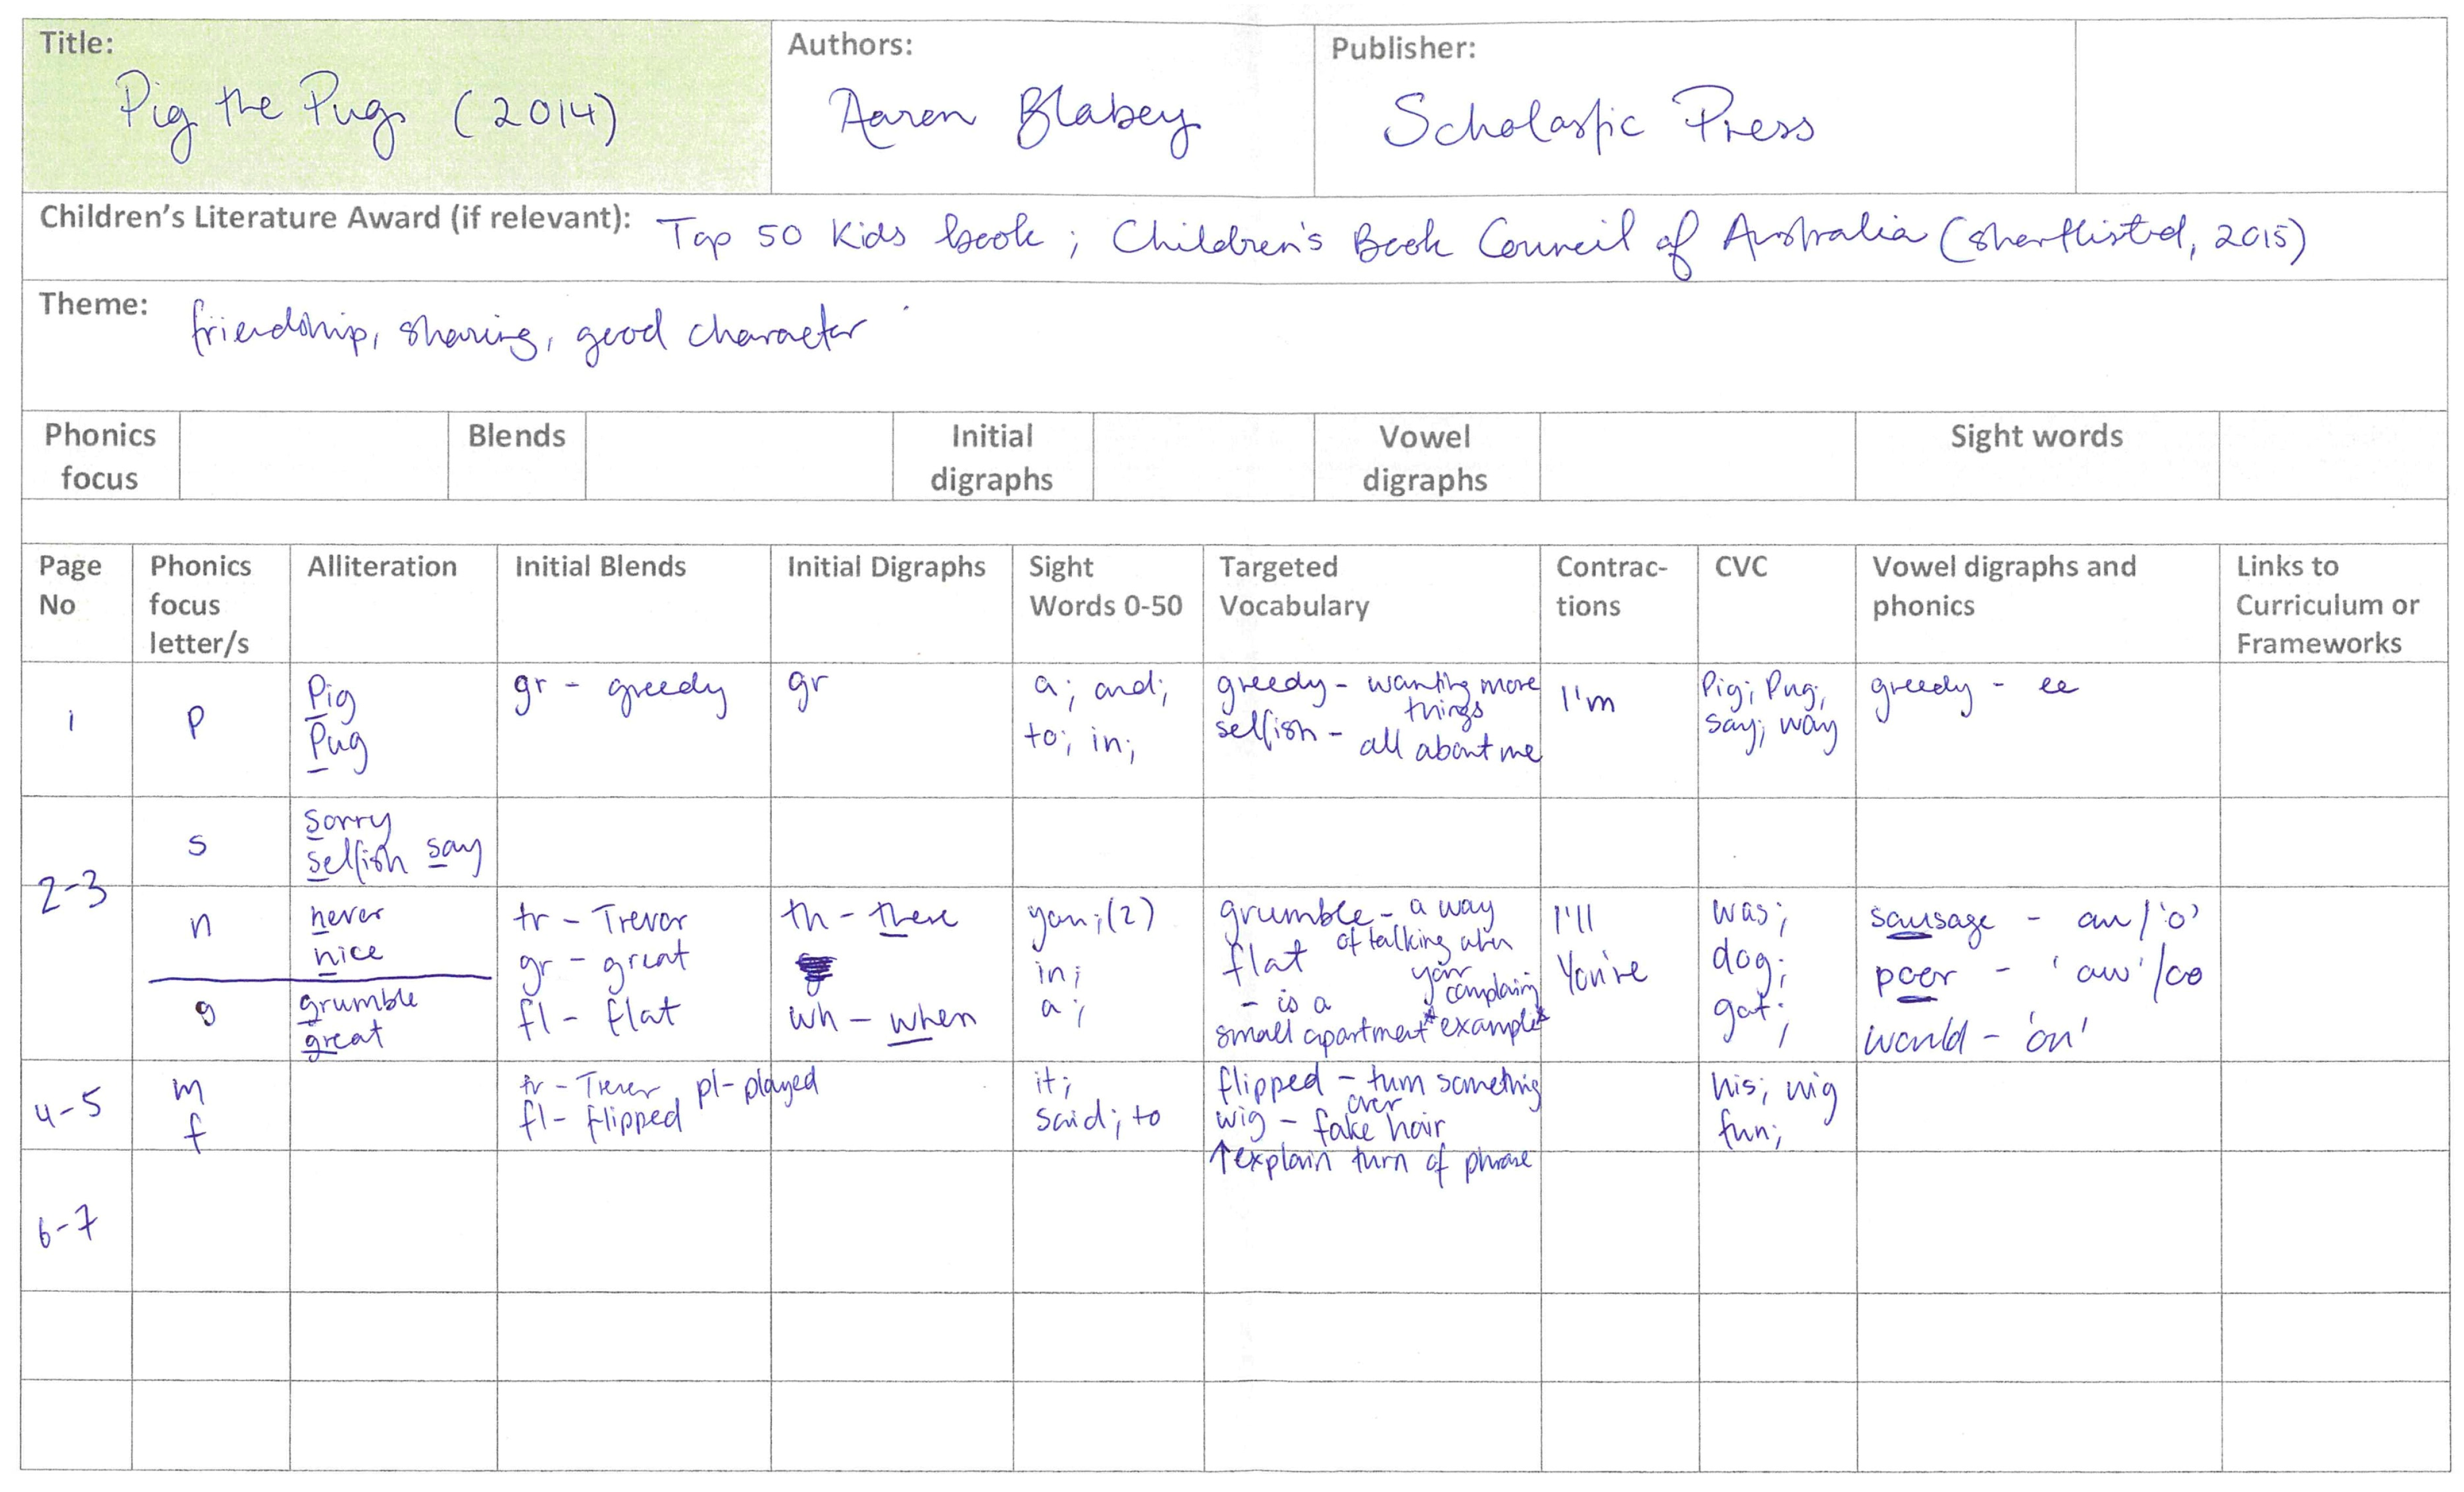 Title:
Pig the Pug (2014)
Authors:
Aaron Blabey
Publisher:
Scholastic Press
Children's Literature Award (if relevant): Top 50 Kids book ; Children's Book Council of Australia (shortlisted, 2015)
Theme:
friendship, sharing, good character
Phonics
focus
Blends
Initial
digraphs
Vowel
digraphs
Sight words
Page
No
Phonics
focus
letter/s
Alliteration
Initial Blends
Initial Digraphs
Sight
Words 0-50
Targeted
Vocabulary
Contrac-
tions
CVC
Vowel digraphs and
phonics
Links to
Curriculum or
Frameworks
1
p
Pig
Pug
gr - greedy
gr
a; and;
to; in;
greedy - wanting more
things
selfish - all about me
I'm
Pig; Pug;
say; way
greedy - ee
2-3
s
sorry
selfish say
n
never
nice
g
grumble
great
tr - Trevor
gr - great
fl - flat
th - there
wh - when
you; (2)
in;
a;
grumble - a way
of talking when
your
complaining
flat
- is a
small apartment *example*
I'll
You're
was;
dog;
got;
sausage - au/'o'
poor - 'aw'/oo
would - 'ou'
4-5
m
f
tr - Trevor pl - played
fl - flipped
it;
said; to
flipped - turn something
over
wig - fake hair
↑ explain turn of phrase
his; wig
fun;
6-7